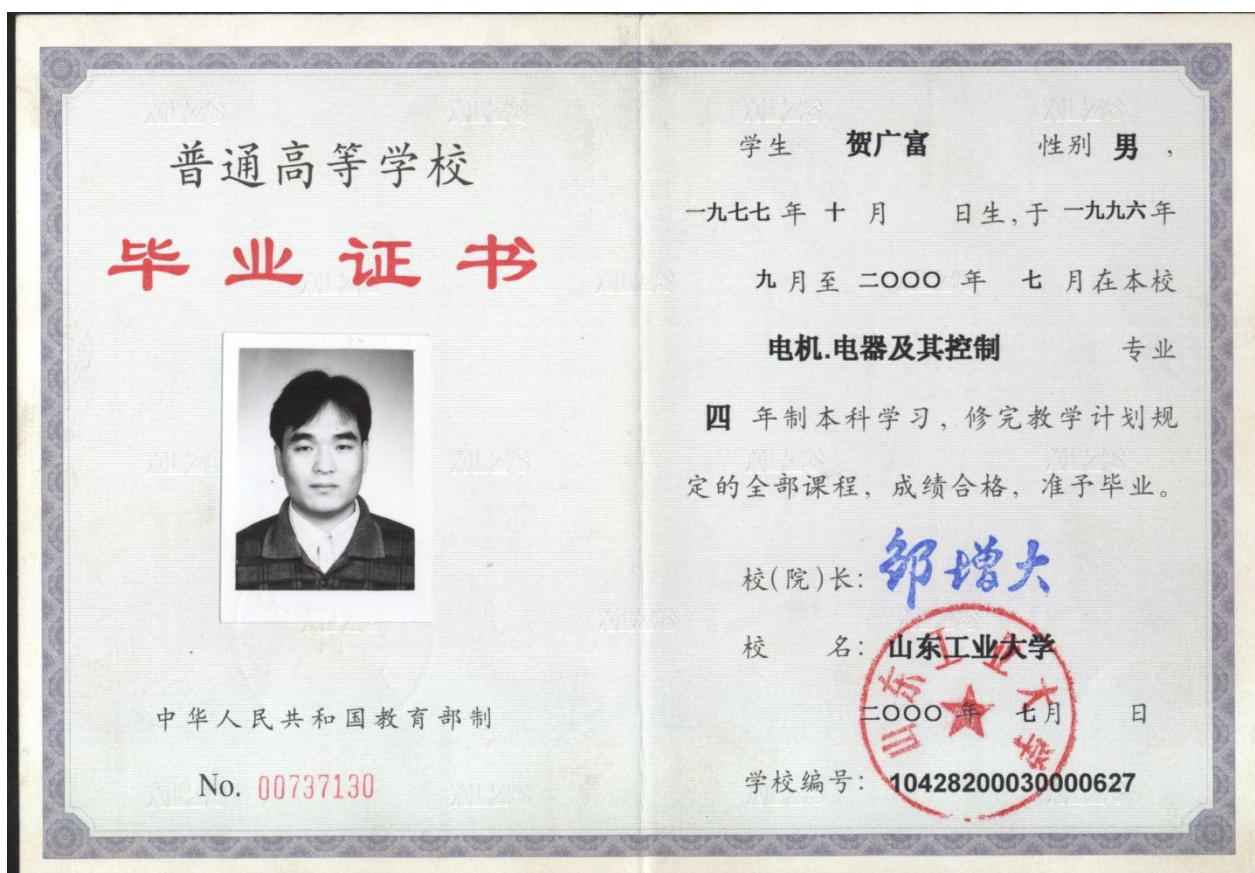 普通高等学校
毕业证书
中华人民共和国教育部制
No. 00737130
学生 贺广富 性别 男，
一九七七 年 十 月 日生，于 一九九六 年
九 月至 二〇〇〇 年 七 月在本校
电机.电器及其控制 专业
四 年制本科学习，修完教学计划规
定的全部课程，成绩合格，准予毕业。
校(院)长： 邹增大
校 名： 山东工业大学
二〇〇〇 年 七 月 日
学校编号： 10428200030000627
山东工业大学